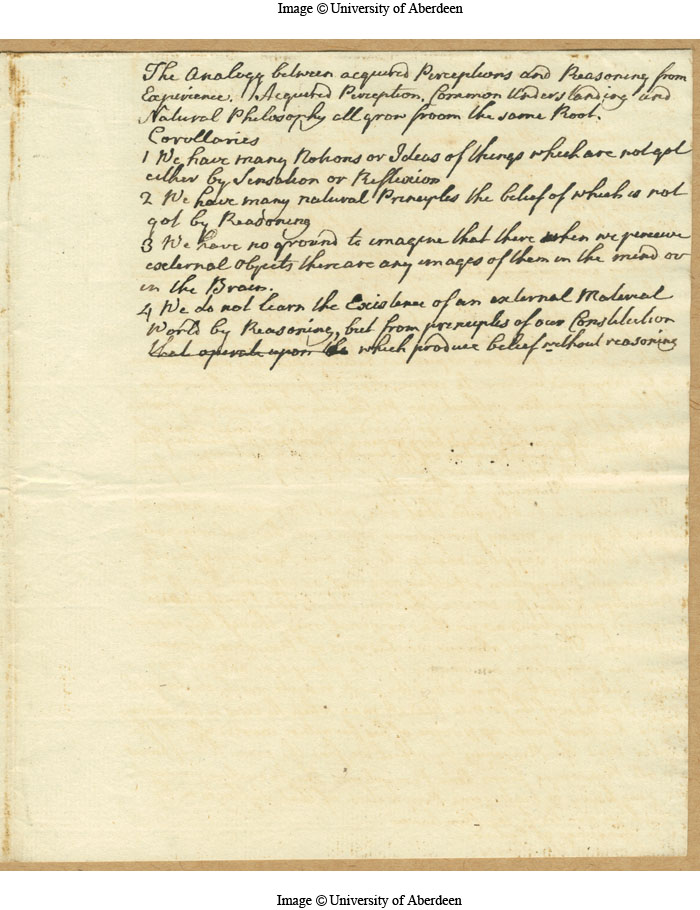 Image © University of Aberdeen
The Analogy between acquired Perceptions and Reasoning from
Experience. Acquired Perception, Common Understanding and
Natural Philosophy all grow from the same Root.
Corollaries
1 We have many Notions or Ideas of things which are not got
either by Sensation or Reflexion
2 We have many natural Principles the belief of which is not
got by Reasoning
3 We have no ground to imagine that there when we perceive
external Objects there are any images of them in the mind or
in the Brain.
4 We do not learn the Existence of an external Material
World by Reasoning, but from principles of our Constitution
that operate upon the which produce belief without reasoning
Image © University of Aberdeen